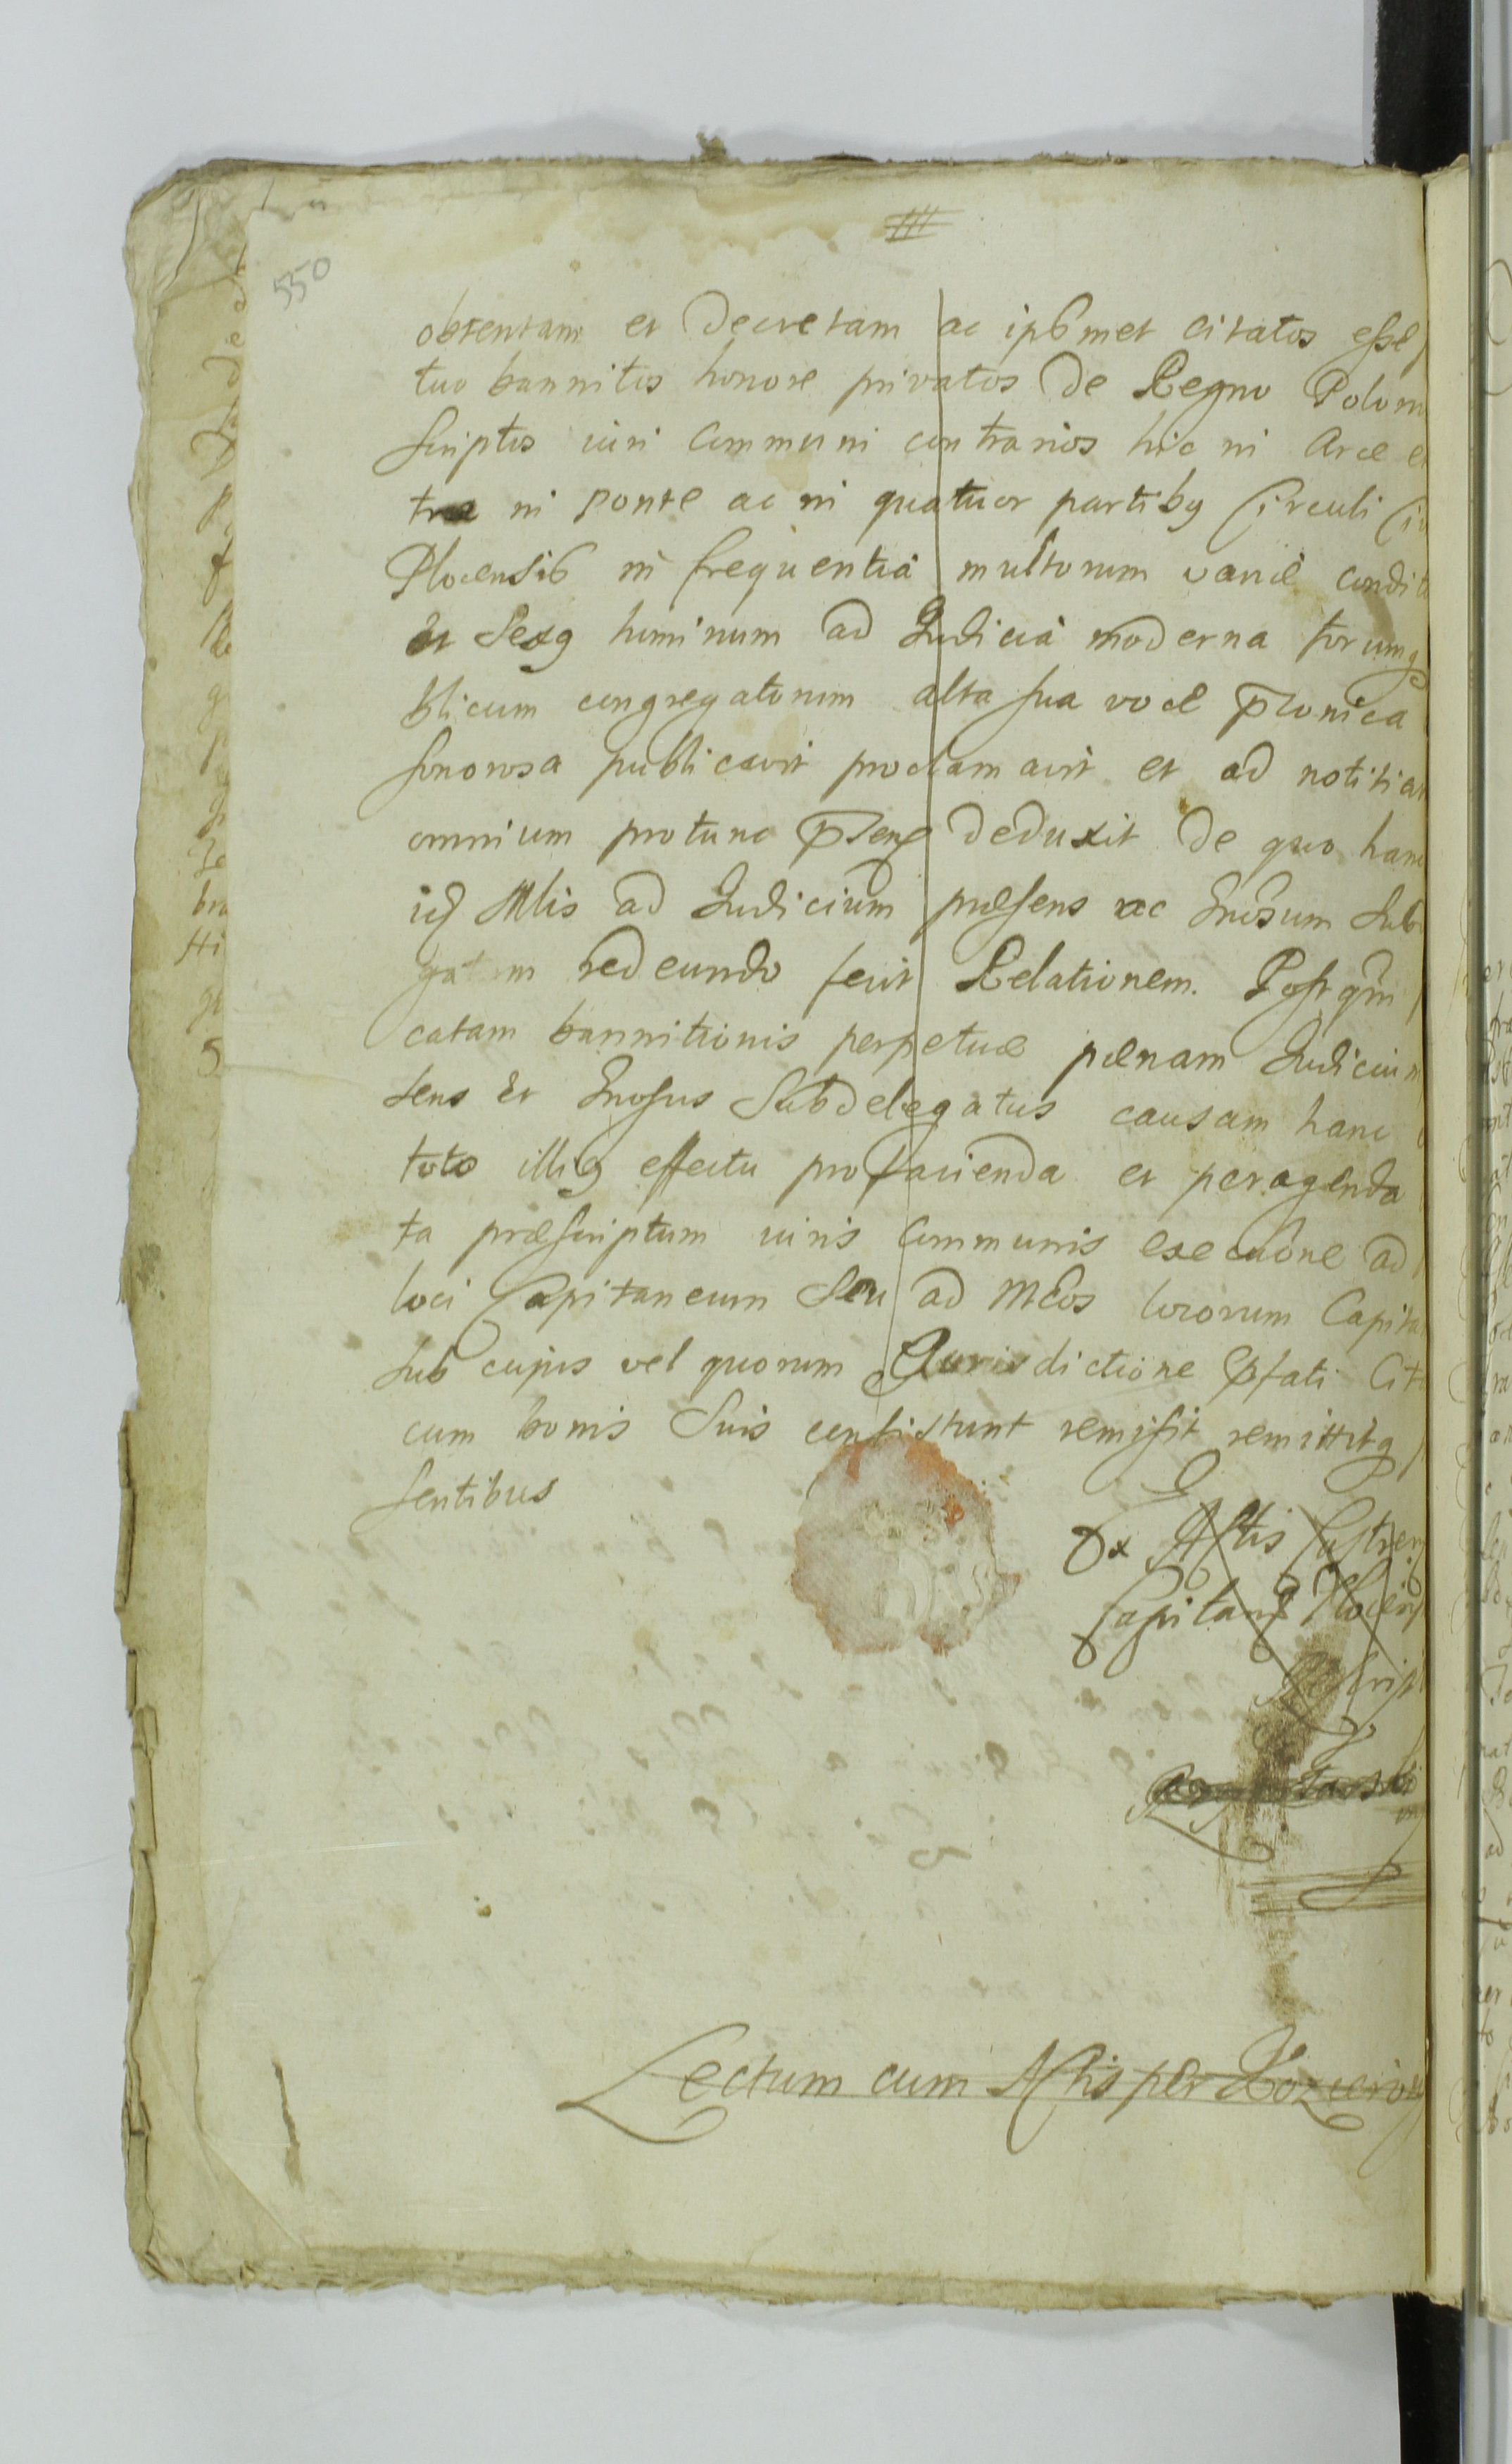 550
obtentam et Decretam ac ipsmet citatos esse
tuo bannitos honore privatos de Regno Polon
scriptos iuri communi contrarios hic in Arce e
in ponte ac in quatuor partibq Circuli Ci
Plocensis in frequentia multorum variae condit
et Sexq hominum ad Judicia moderna forumq
blicum congregatorum alta sua voce Plonica
sonorosa publicavit proclamavit et ad notitia
omnium protunc pseng deduxit De quo hanc
idq Mlis ad Judicium præsens ac Inosum Sub
gatum redeundo fecit Relationem. Post qm
catam bannitionis perpetuæ pænam Judiciu
sens et Inosus Subdelegatus causam hanc
toto illiq effectu pro facienda et peragenda
ta præscriptum iuris communis execuōne ad
loci Capitaneum Seu ad Mcos locorum Capita
sub cujus vel quorum Jurisdictione Pfati Cit
cum bonis Suis consistunt remisit remittitq
sentibus
Ex Actis Castren
Capitang Plocen
Lectum cum Actis per